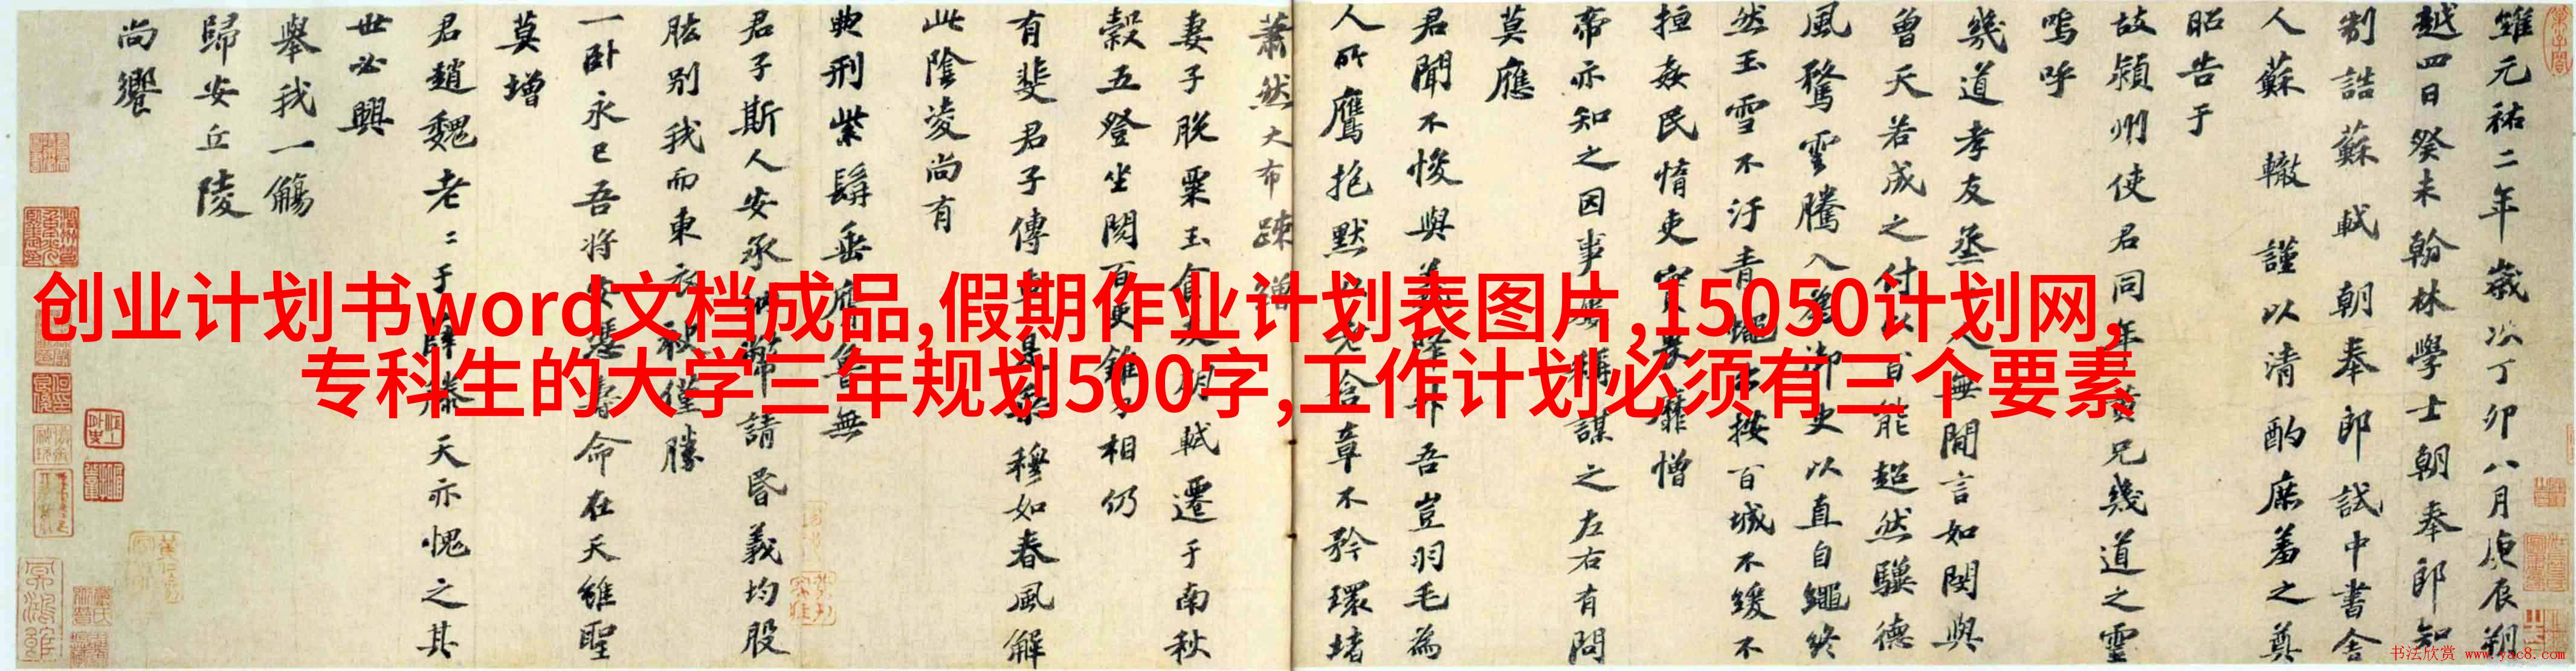 创业计划书word文档成品,假期作业计划表图片,15050计划网,
专科生的大学三年规划500字,工作计划必须有三个要素
維元祐二年歲次丁卯八月庚辰朔
越四日癸未翰林學士朝奉郎知
制誥蘇軾朝奉郎試中書舍
人蘇轍謹以清酌庶羞之奠
昭告于
故潁州使君同年黃兄幾道之靈
嗚呼
幾道孝友烝人無間言如閔與
曾天若成之付以百能超然驥德
風騖雲騰入為御史以直自繩終
然玉雪不汙青蠅出按百城不緩不
搄姦民惰吏實畏靡憎
帝亦知之因事屢稱謀之左右有問
莫應
君聞不悛與義降升吾豈羽毛為
人所鷹抱默以老含章不矜環堵
蕭然大布疎繒
妻子脫粟玉食友朋軾遷于南秋
穀五登坐閱百吏錐刀相仍
有斐君子傳車是乘穆如春風解
此陰凌尚有
典刑紫髯垂膺魯無
君子斯人安承納幣請昏義均股
肱別我而東衣袂僅勝
一臥永已吾將安憑壽命在天雖聖
莫增
君趙魏老二于薛滕天亦愧之其
世必興
舉我一觴
歸安丘陵
尚饗
书法欣赏 www.yac8.com